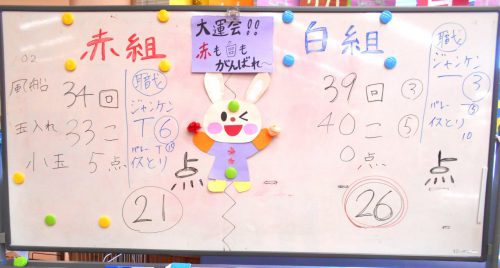 大運会!!
赤も白も
がんばれ〜
赤組
風船 34回
玉入れ 33こ
小玉 5点
職
ジャンケン
T⑥
バレー T
イスとり
点
21
白組
39回 ③
40こ ⑤
0点
職
ジャンケン
③
バレー
イスとり
10
点
26